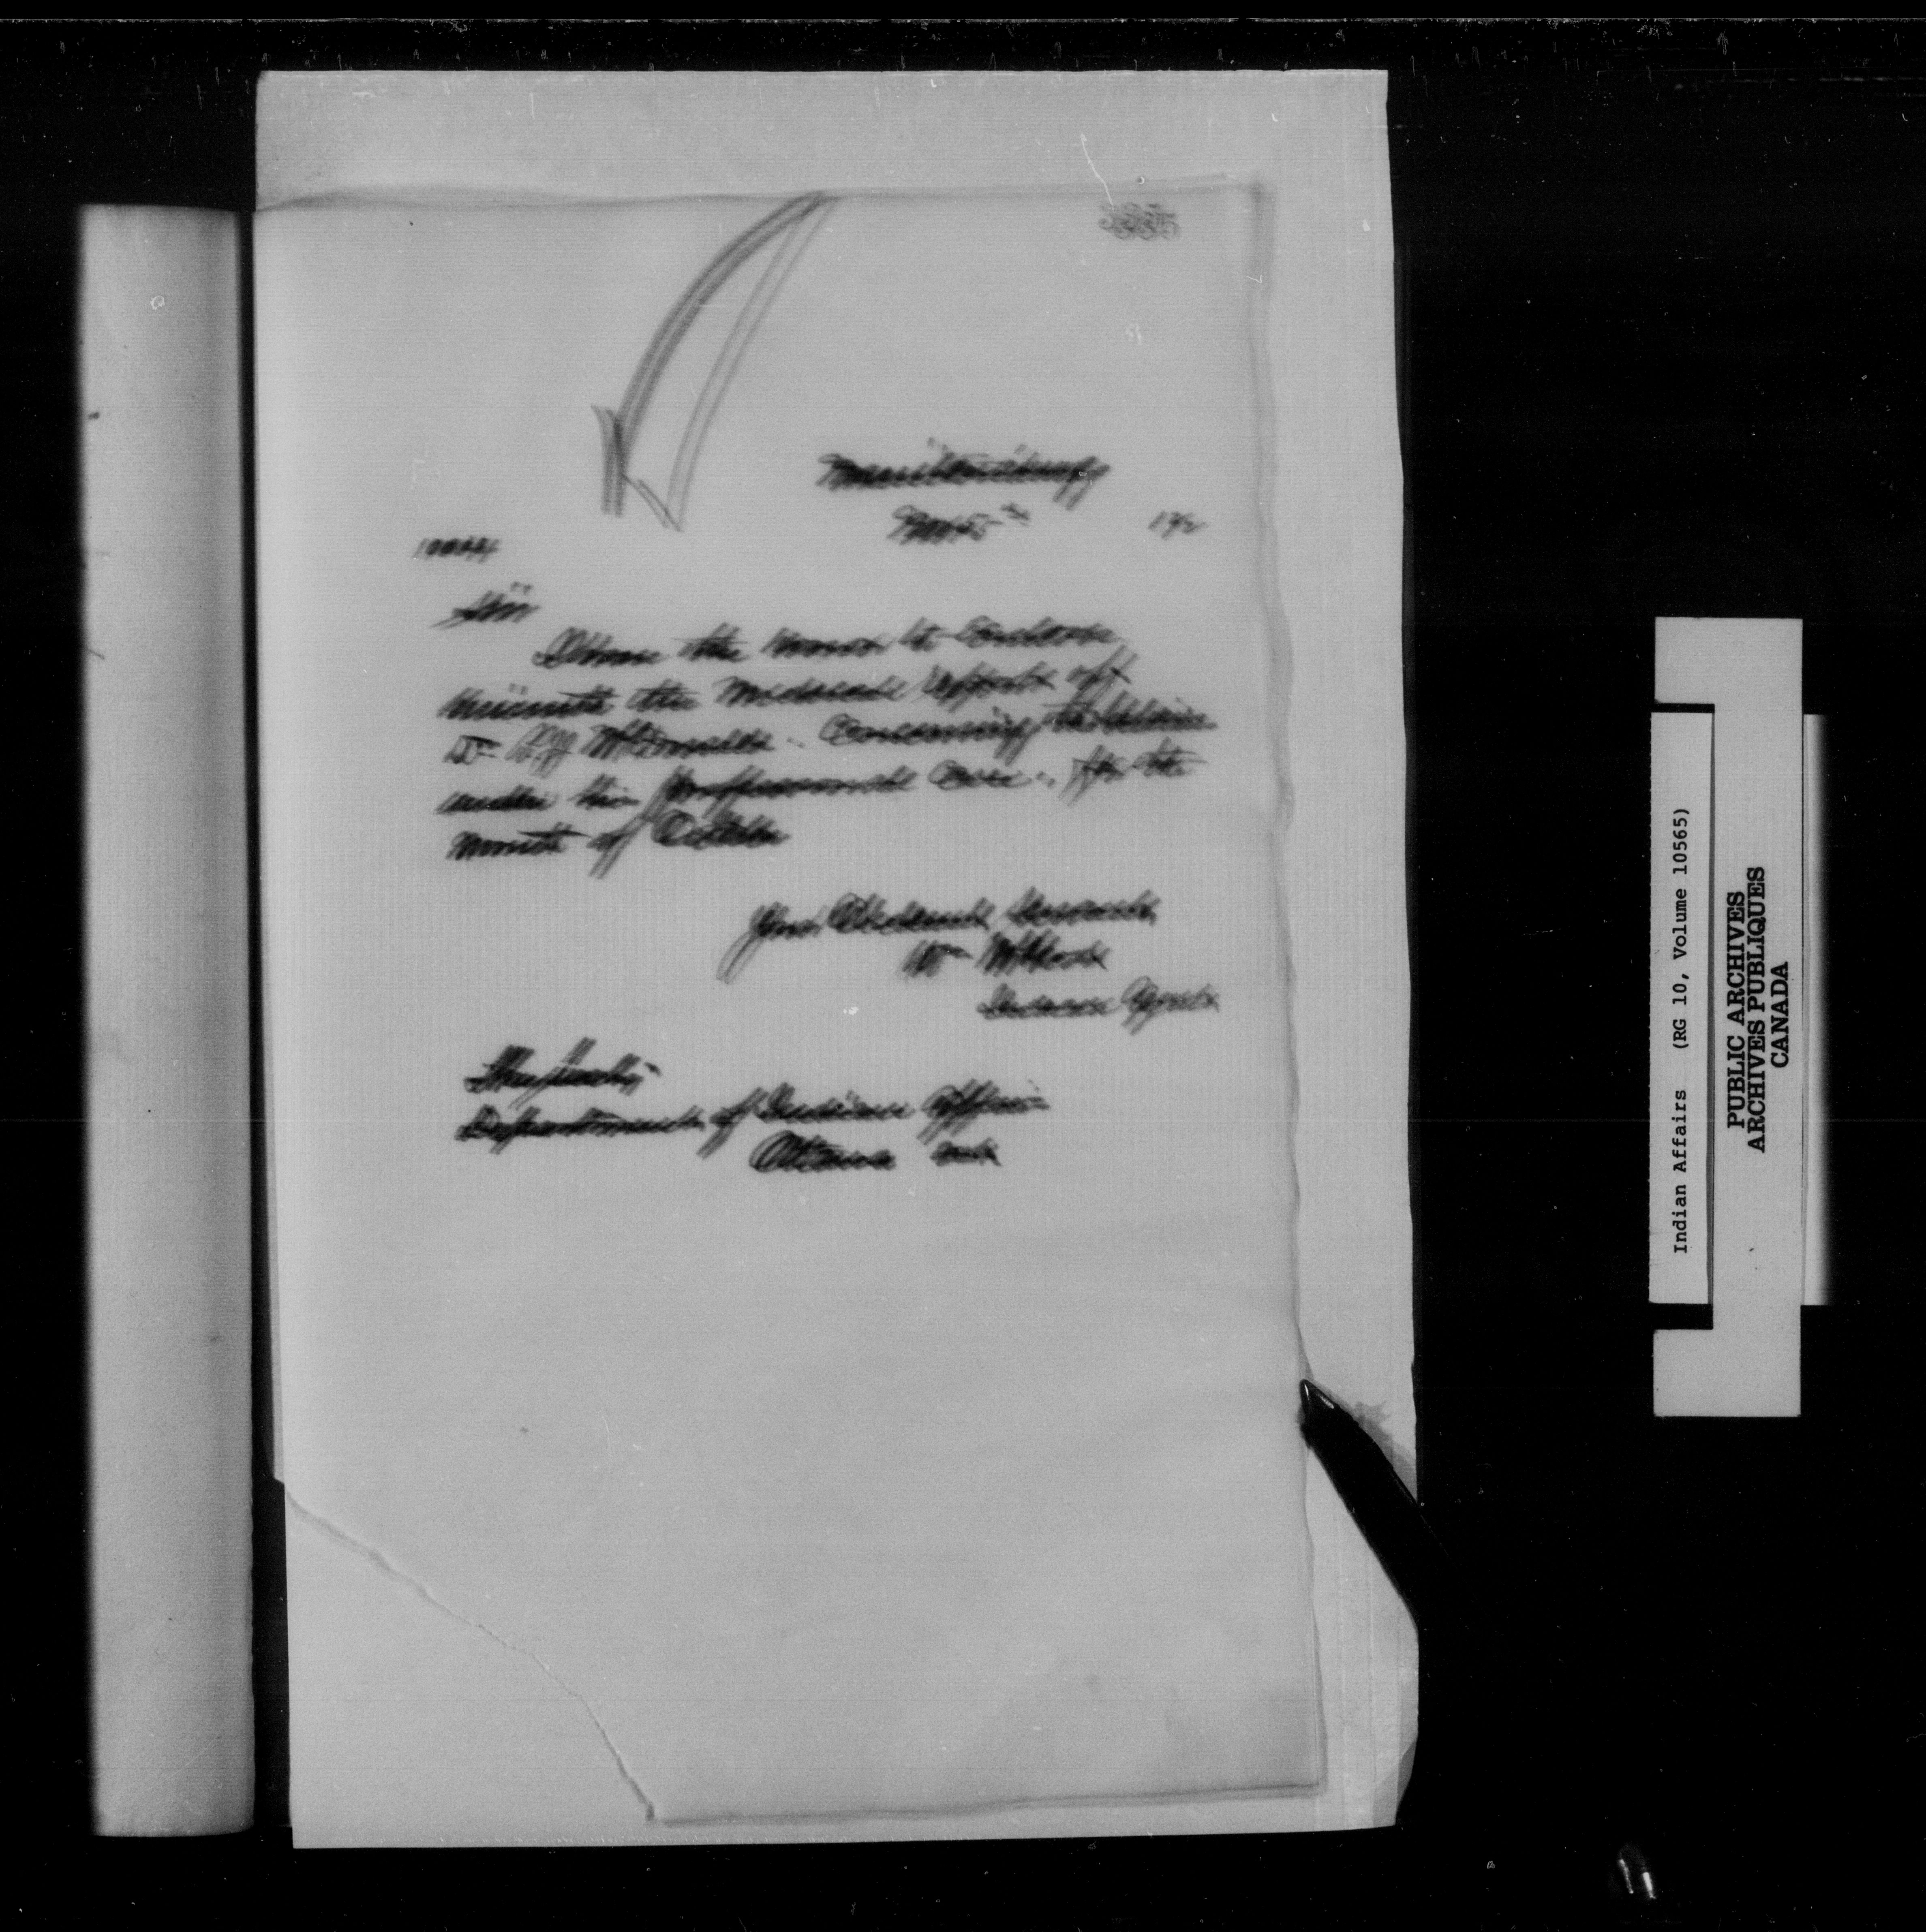 335
Manitowaning
Nov 5th 1912
Sir
I have the honor to Enclose
herewith the Medical report of
Dr McDonald. Concerning the Indians
under his professional Care. for the
month of October
Your Obedient Servant
Wm
Indian Agent
The Secty
Department of Indian Affairs
Ottawa Ont
Indian Affairs (RG 10, Volume 10565)
PUBLIC ARCHIVES
ARCHIVES PUBLIQUES
CANADA